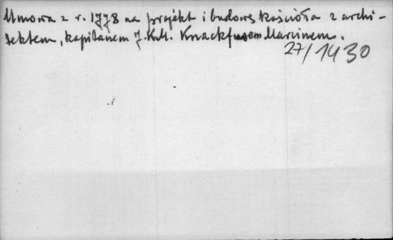 Umowa z r. 1778 na projekt i budowę kościoła z archi-
tektem, kapitanem J. K. M. Knackfusem Marcinem.
27/1430